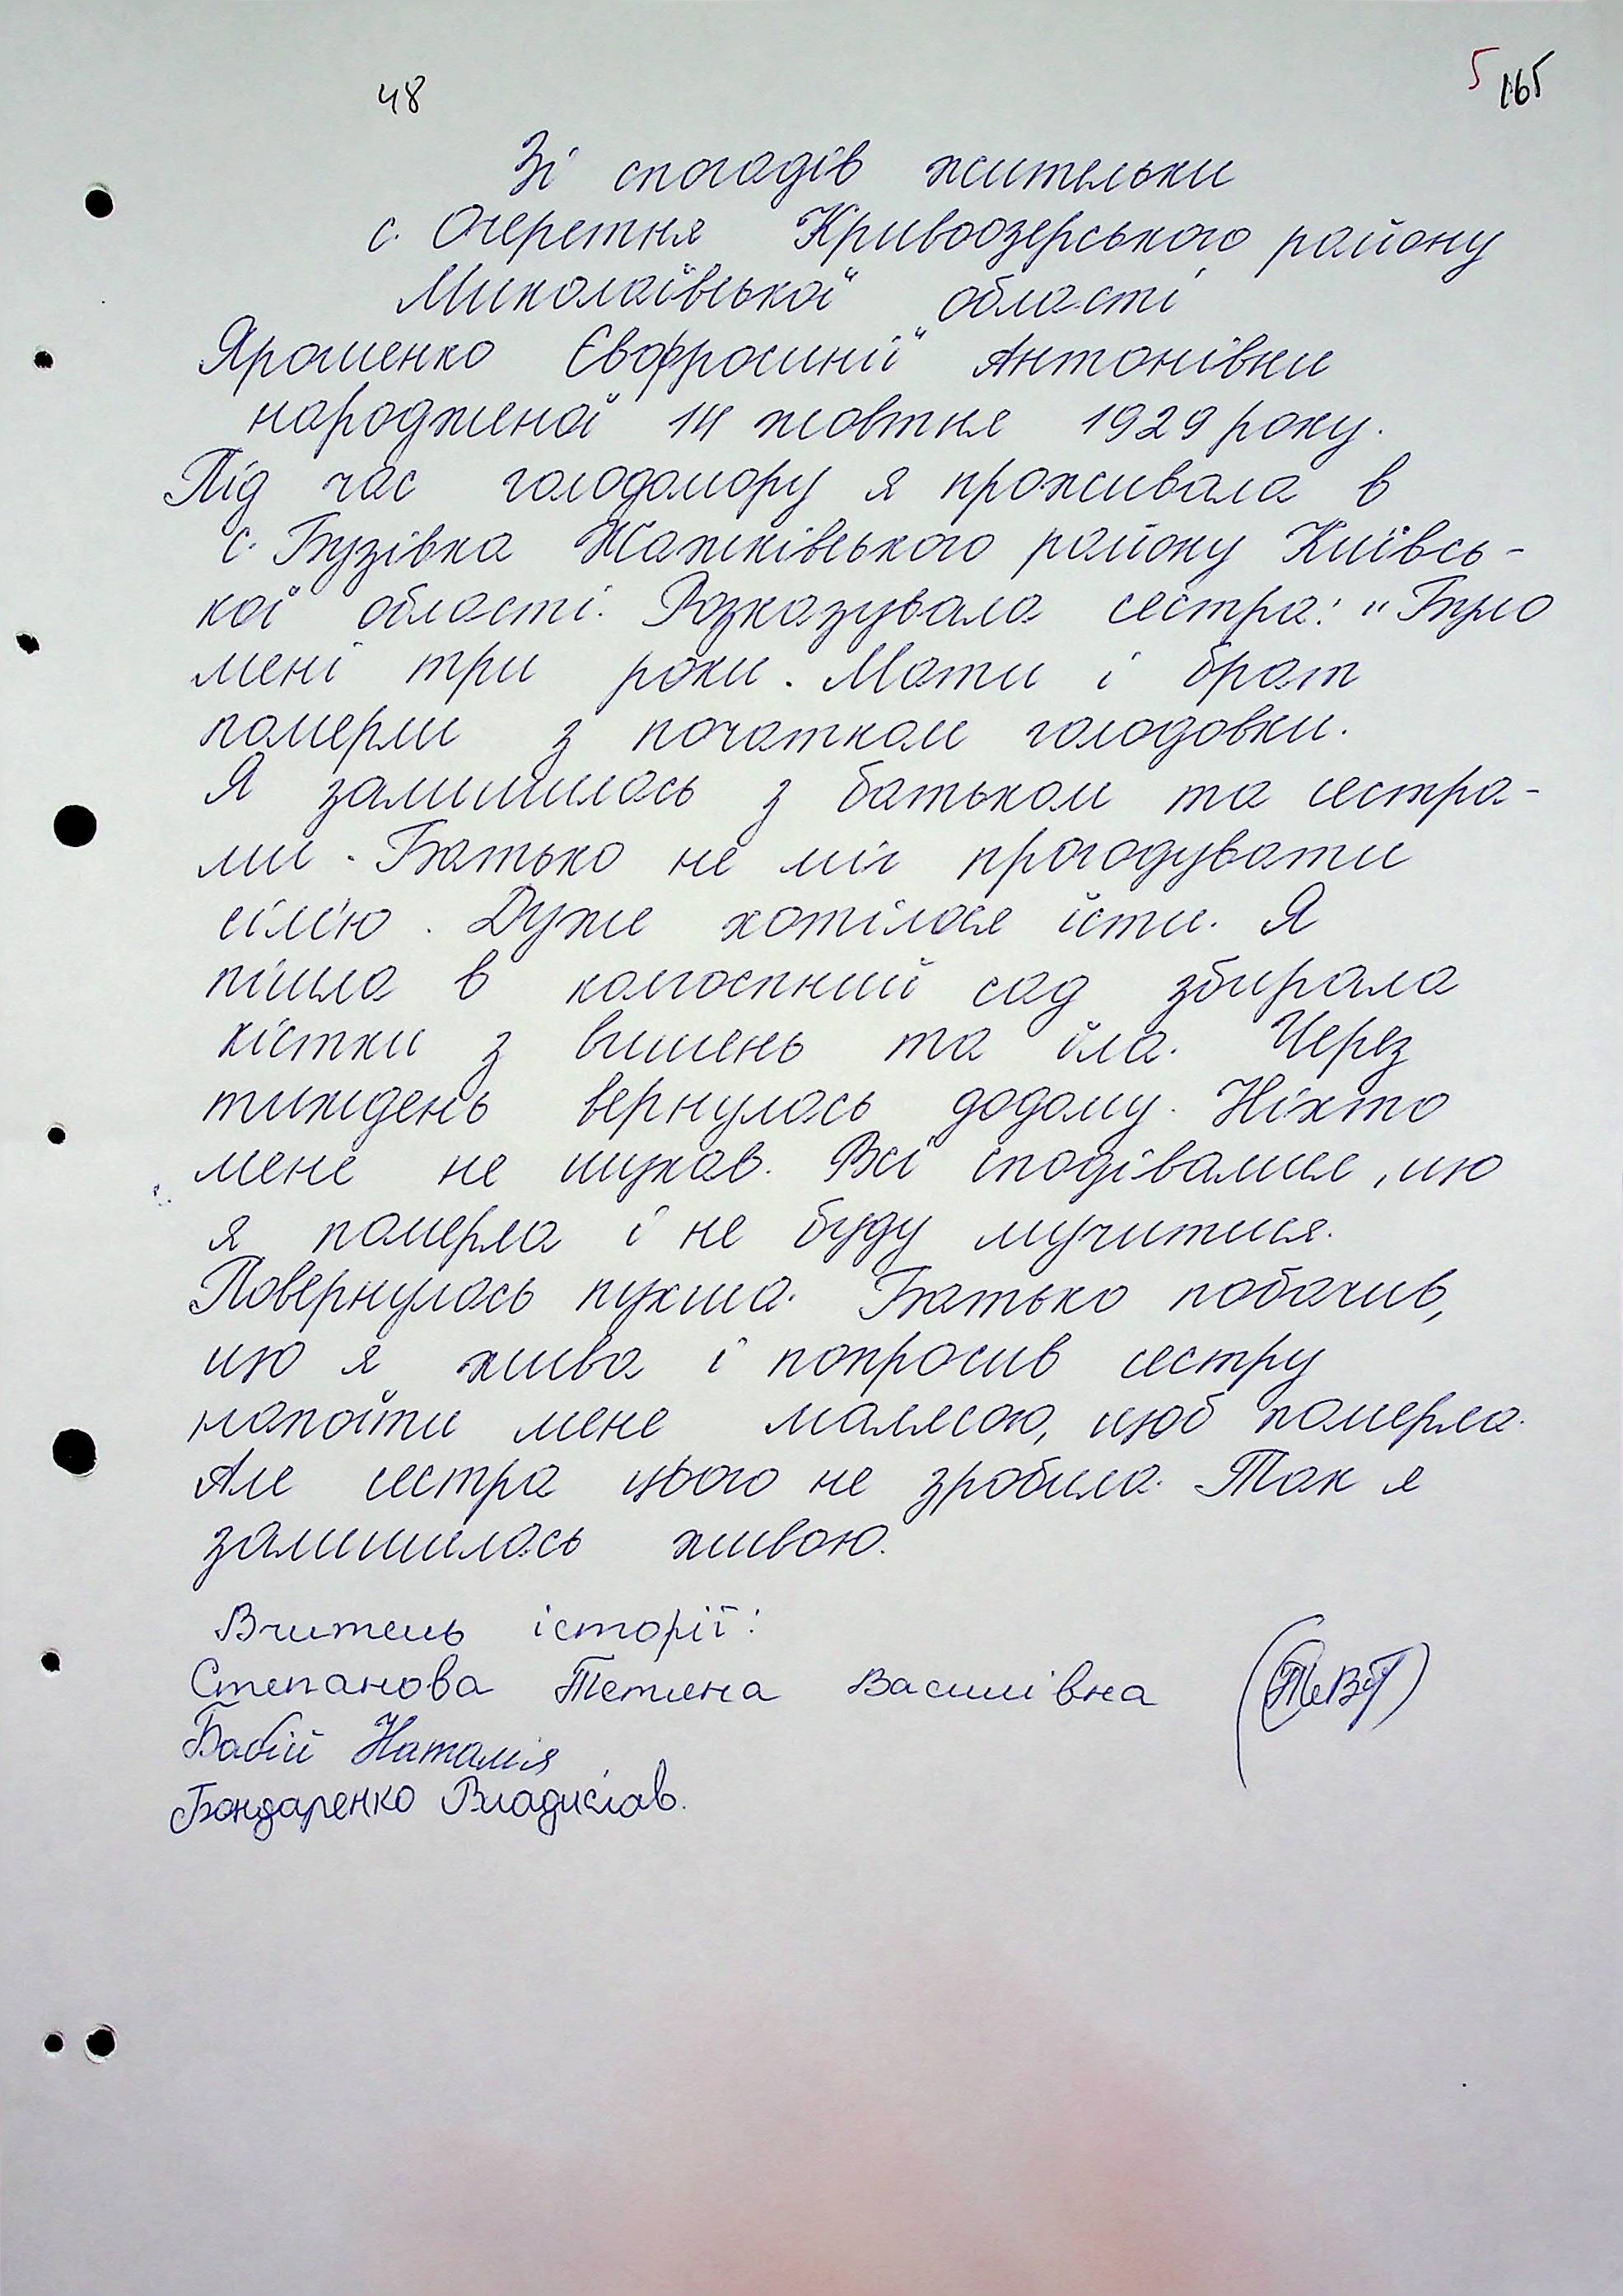 48
5 165
Зі спогадів жительки
с. Очеретня Кривоозерського району
Миколаївської області
Ярошенко Євфросинії Антонівни
народженої 14 жовтня 1929 року.
Під час голодомору я проживала в
с. Бузівка Жашківського району Київсь-
кої області. Розказувала сестра: "Було
мені три роки. Мати і брат
померли з початком голодовки.
Я залишилась з батьком та сестра-
ми. Батько не міг прогодувати
сім'ю. Дуже хотілося їсти. Я
пішла в колгоспний сад збирала
кістки з вишень та їла. Через
тиждень вернулась додому. Ніхто
мене не шукав. Всі сподівалися, що
я померла і не буду мучитися.
Повернулась пухша. Батько побачив,
що я жива і попросив сестру
напоїти мене малясою, щоб померла.
Але сестра цього не зробила. Так я
залишилась живою.
Вчитель історії:
Степанова Тетяна Василівна
Бабій Наталія
Бондаренко Владислав.